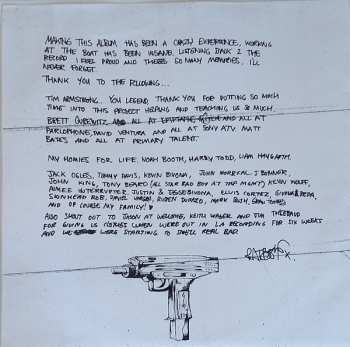 MAKING THIS ALBUM HAS BEEN A CRAZY EXPERIENCE, WORKING
AT THE BOAT HAS BEEN INSANE. LISTENING BACK 2 THE
RECORD I FEEL PROUD AND THERES SO MANY MEMORIES, I'LL
NEVER FORGET.
THANK YOU TO THE FOLLOWING...
TIM ARMSTRONG... YOU LEGEND, THANK YOU FOR PUTTING SO MUCH
TIME INTO THIS PROJECT HELPING AND TEACHING US SO MUCH.
BRETT GUREWITZ AND ALL AT EPITAPH AND ALL AT
PARLOPHONE, DAVID VENTURA AND ALL AT SONY ATV. MATT
BATES AND ALL AT PRIMARY TALENT.
MY HOMIES FOR LIFE. NOAH BOOTH, HARRY TODD, LIAM HAYGARTH.
JACK OGLES, TOMMY DAVIS, KEVIN BIVONA, JOHN MORRICAL, J BONNER,
JOHN KING, TONY BEARD (ALL STAR BAD BOY AT TAP MGMT) KEVIN WOLFF,
AIMEE INTERRUPTER, JUSTIN & JESSE BIVONA, ELVIS CORTEZ,
SKINHEAD ROB, DAVID VARGAS, RUBEN DURAZO, MARK BUSH,
AND OF COURSE MY FAMILY!
ALSO SHOUT OUT TO JASON AT WELCOME, KEITH WAGER AND TIM THIEBAUD
FOR GIVING US HOMES WHEN WE'RE OUT IN LA RECORDING FOR SIX WEEKS
AND WE WERE STARTING TO SMELL REAL BAD.